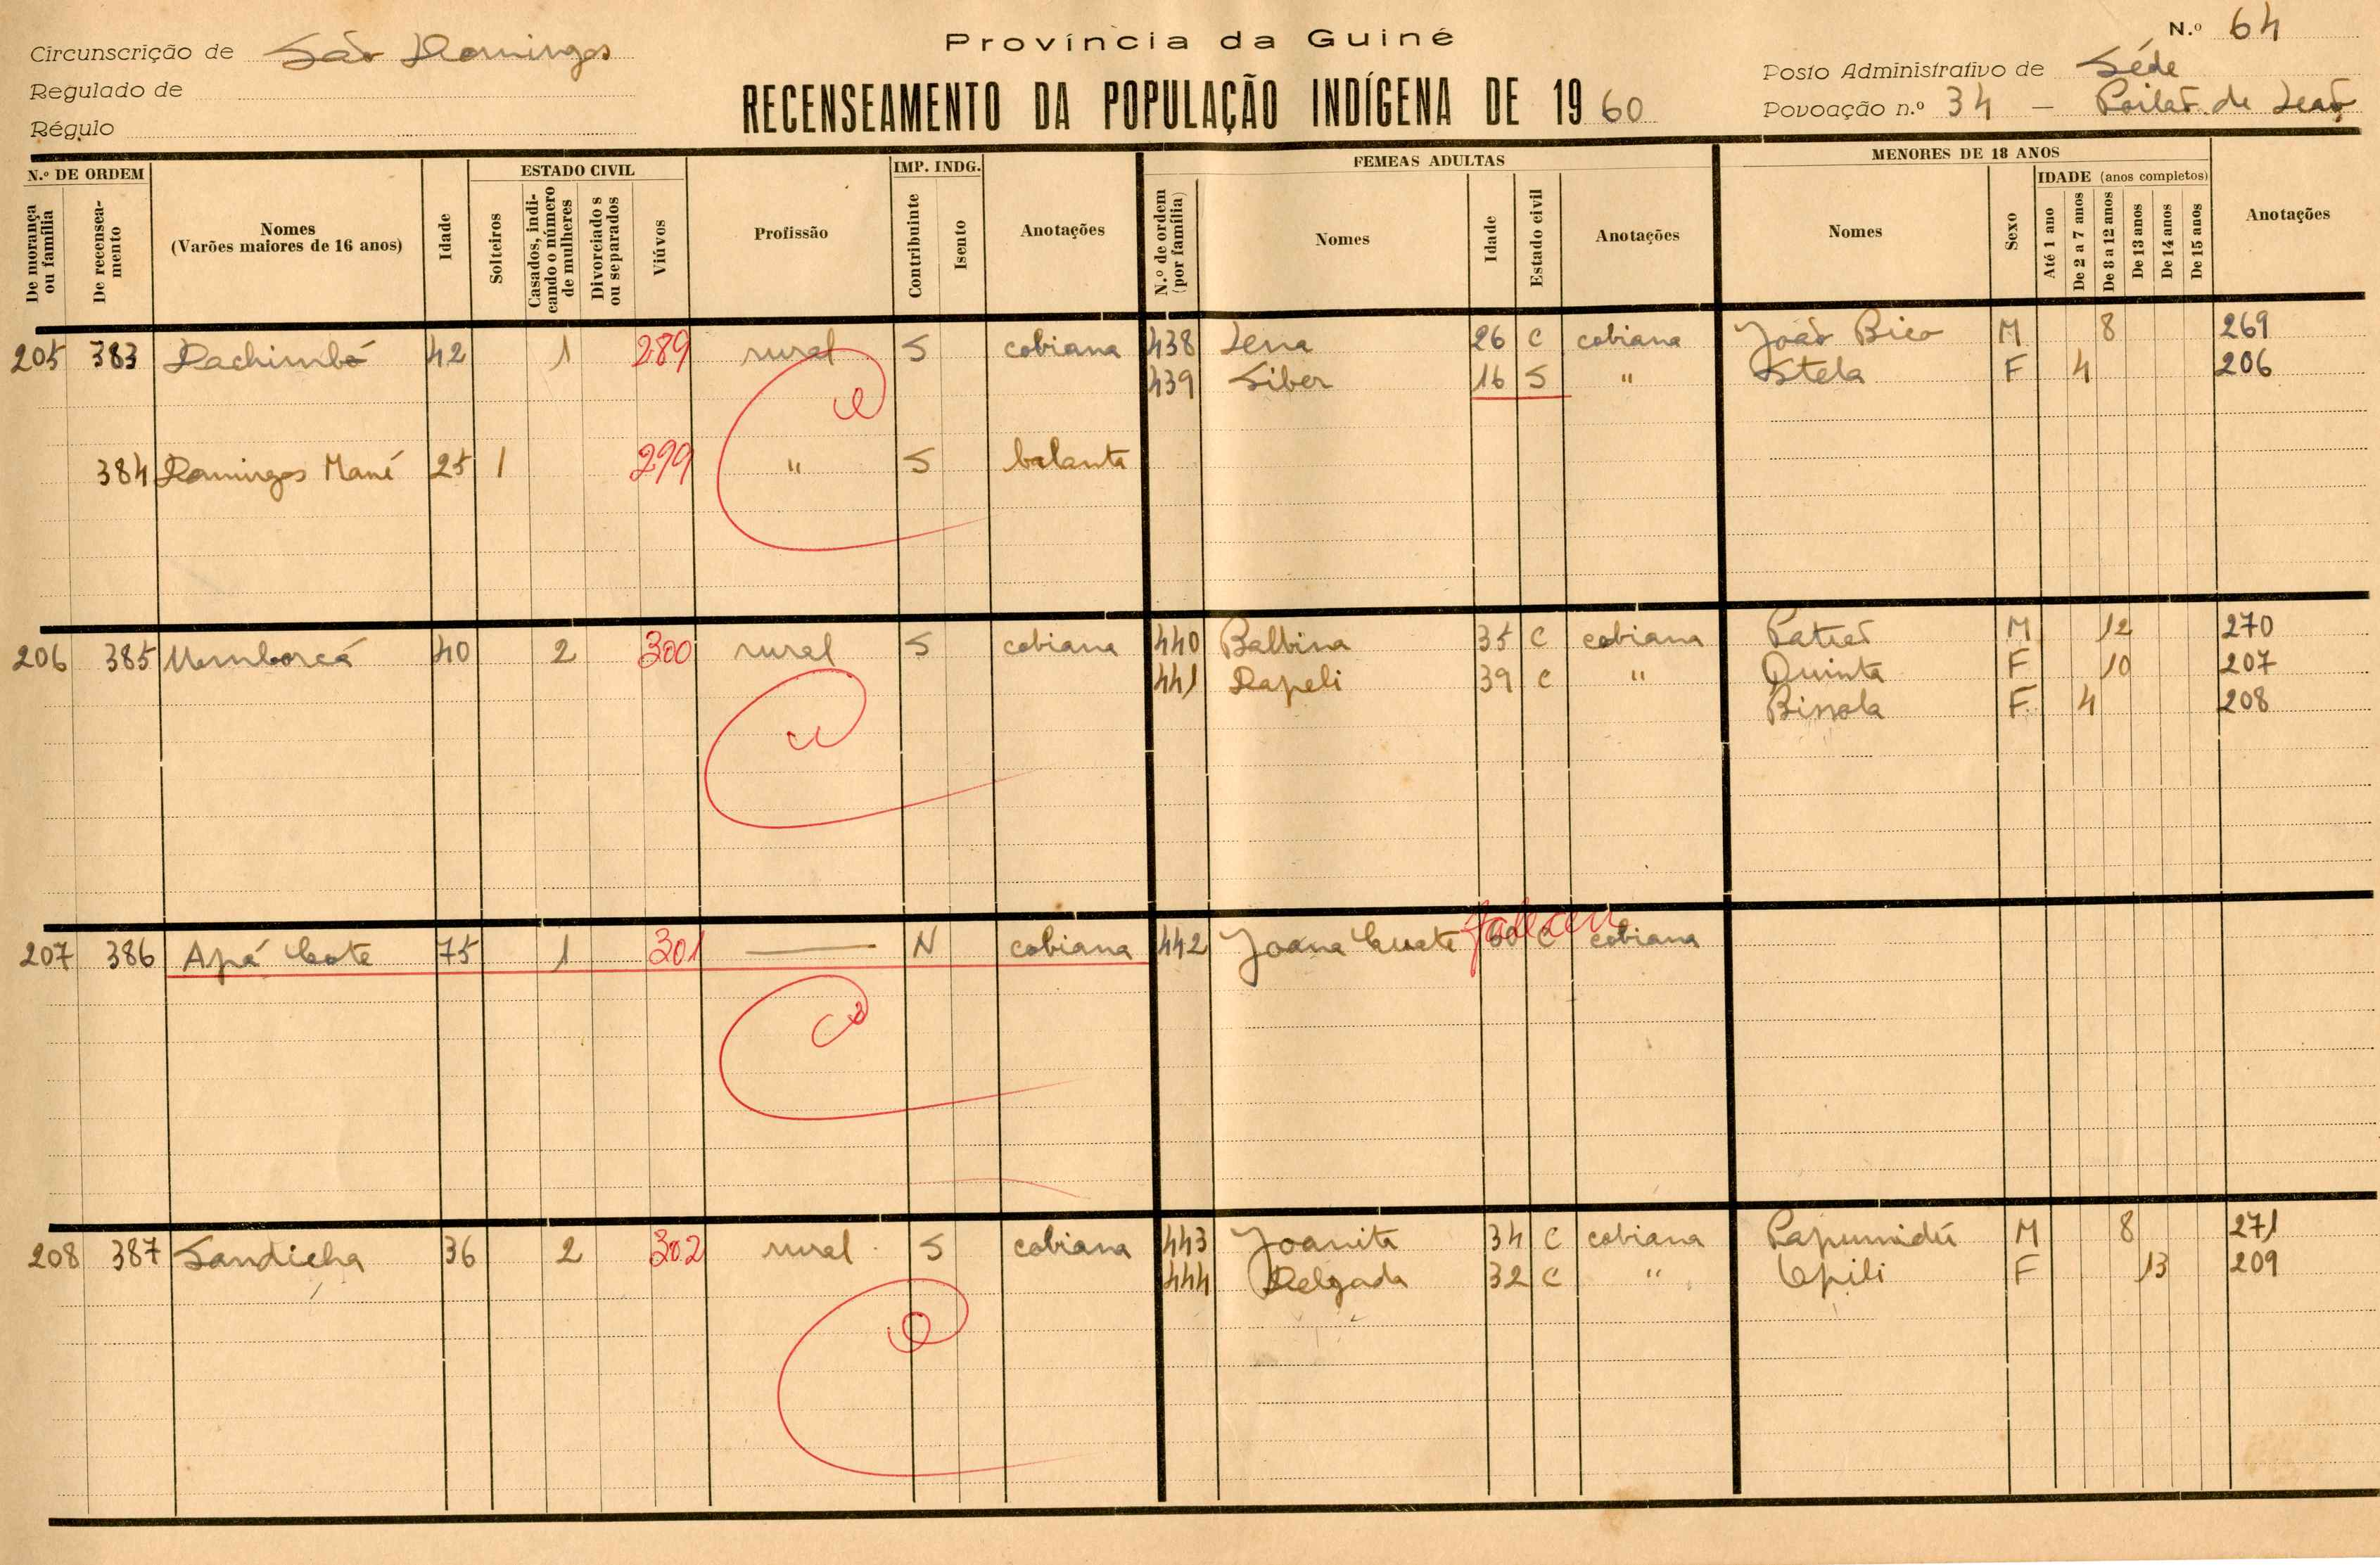 Província da Guiné
N.º 64
Circunscrição de São Domingos
Regulado de
Régulo
RECENSEAMENTO DA POPULAÇÃO INDÍGENA DE 1960
Posto Administrativo de Séde
Povoação n.º 34 - Poilão de Leão
N.º DE ORDEM
De morança ou família
De recenseamento
Nomes
(Varões maiores de 16 anos)
Idade
ESTADO CIVIL
Solteiros
Casados, indicando o número de mulheres
Divorciados ou separados
Viúvos
Profissão
IMP. INDG.
Contribuinte
Isento
Anotações
FEMEAS ADULTAS
N.º de ordem (por família)
Nomes
Idade
Estado civil
Anotações
MENORES DE 18 ANOS
Nomes
Sexo
IDADE (anos completos)
Até 1 ano
De 2 a 7 anos
De 8 a 12 anos
De 13 anos
De 14 anos
De 15 anos
Anotações
205 383 Dachimbó 42 1 289 rural S cobiana 438 Lena 26 C cobiana João Bico M 8 269
439 Siber 16 S " Stela F 4 206
384 Domingos Mané 25 1 299 " S balanta
206 385 40 2 300 rural S cobiana 440 Balbina 35 C cobiana M 12 270
441 Dapeli 39 C " Quinta F 10 207
Bissola F 4 208
207 386 Apá 75 1 301 — N cobiana 442 Joana faleceu 60 C cobiana
208 387 Sandicha 36 2 302 rural S cobiana 443 Joanita 34 C cobiana M 8 271
444 Delgada 32 C " F 13 209